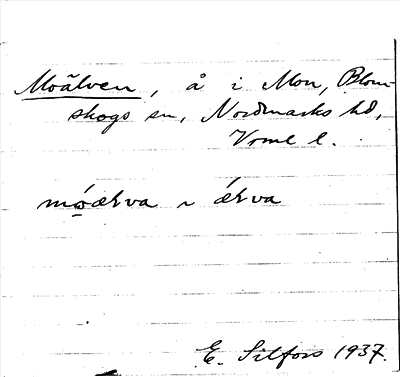 Moälven, å i Mon, Blom-
skogs sn, Nordmarks hd,
Vrml l.
móærva ~ ǽrva
E. Silfors 1937.